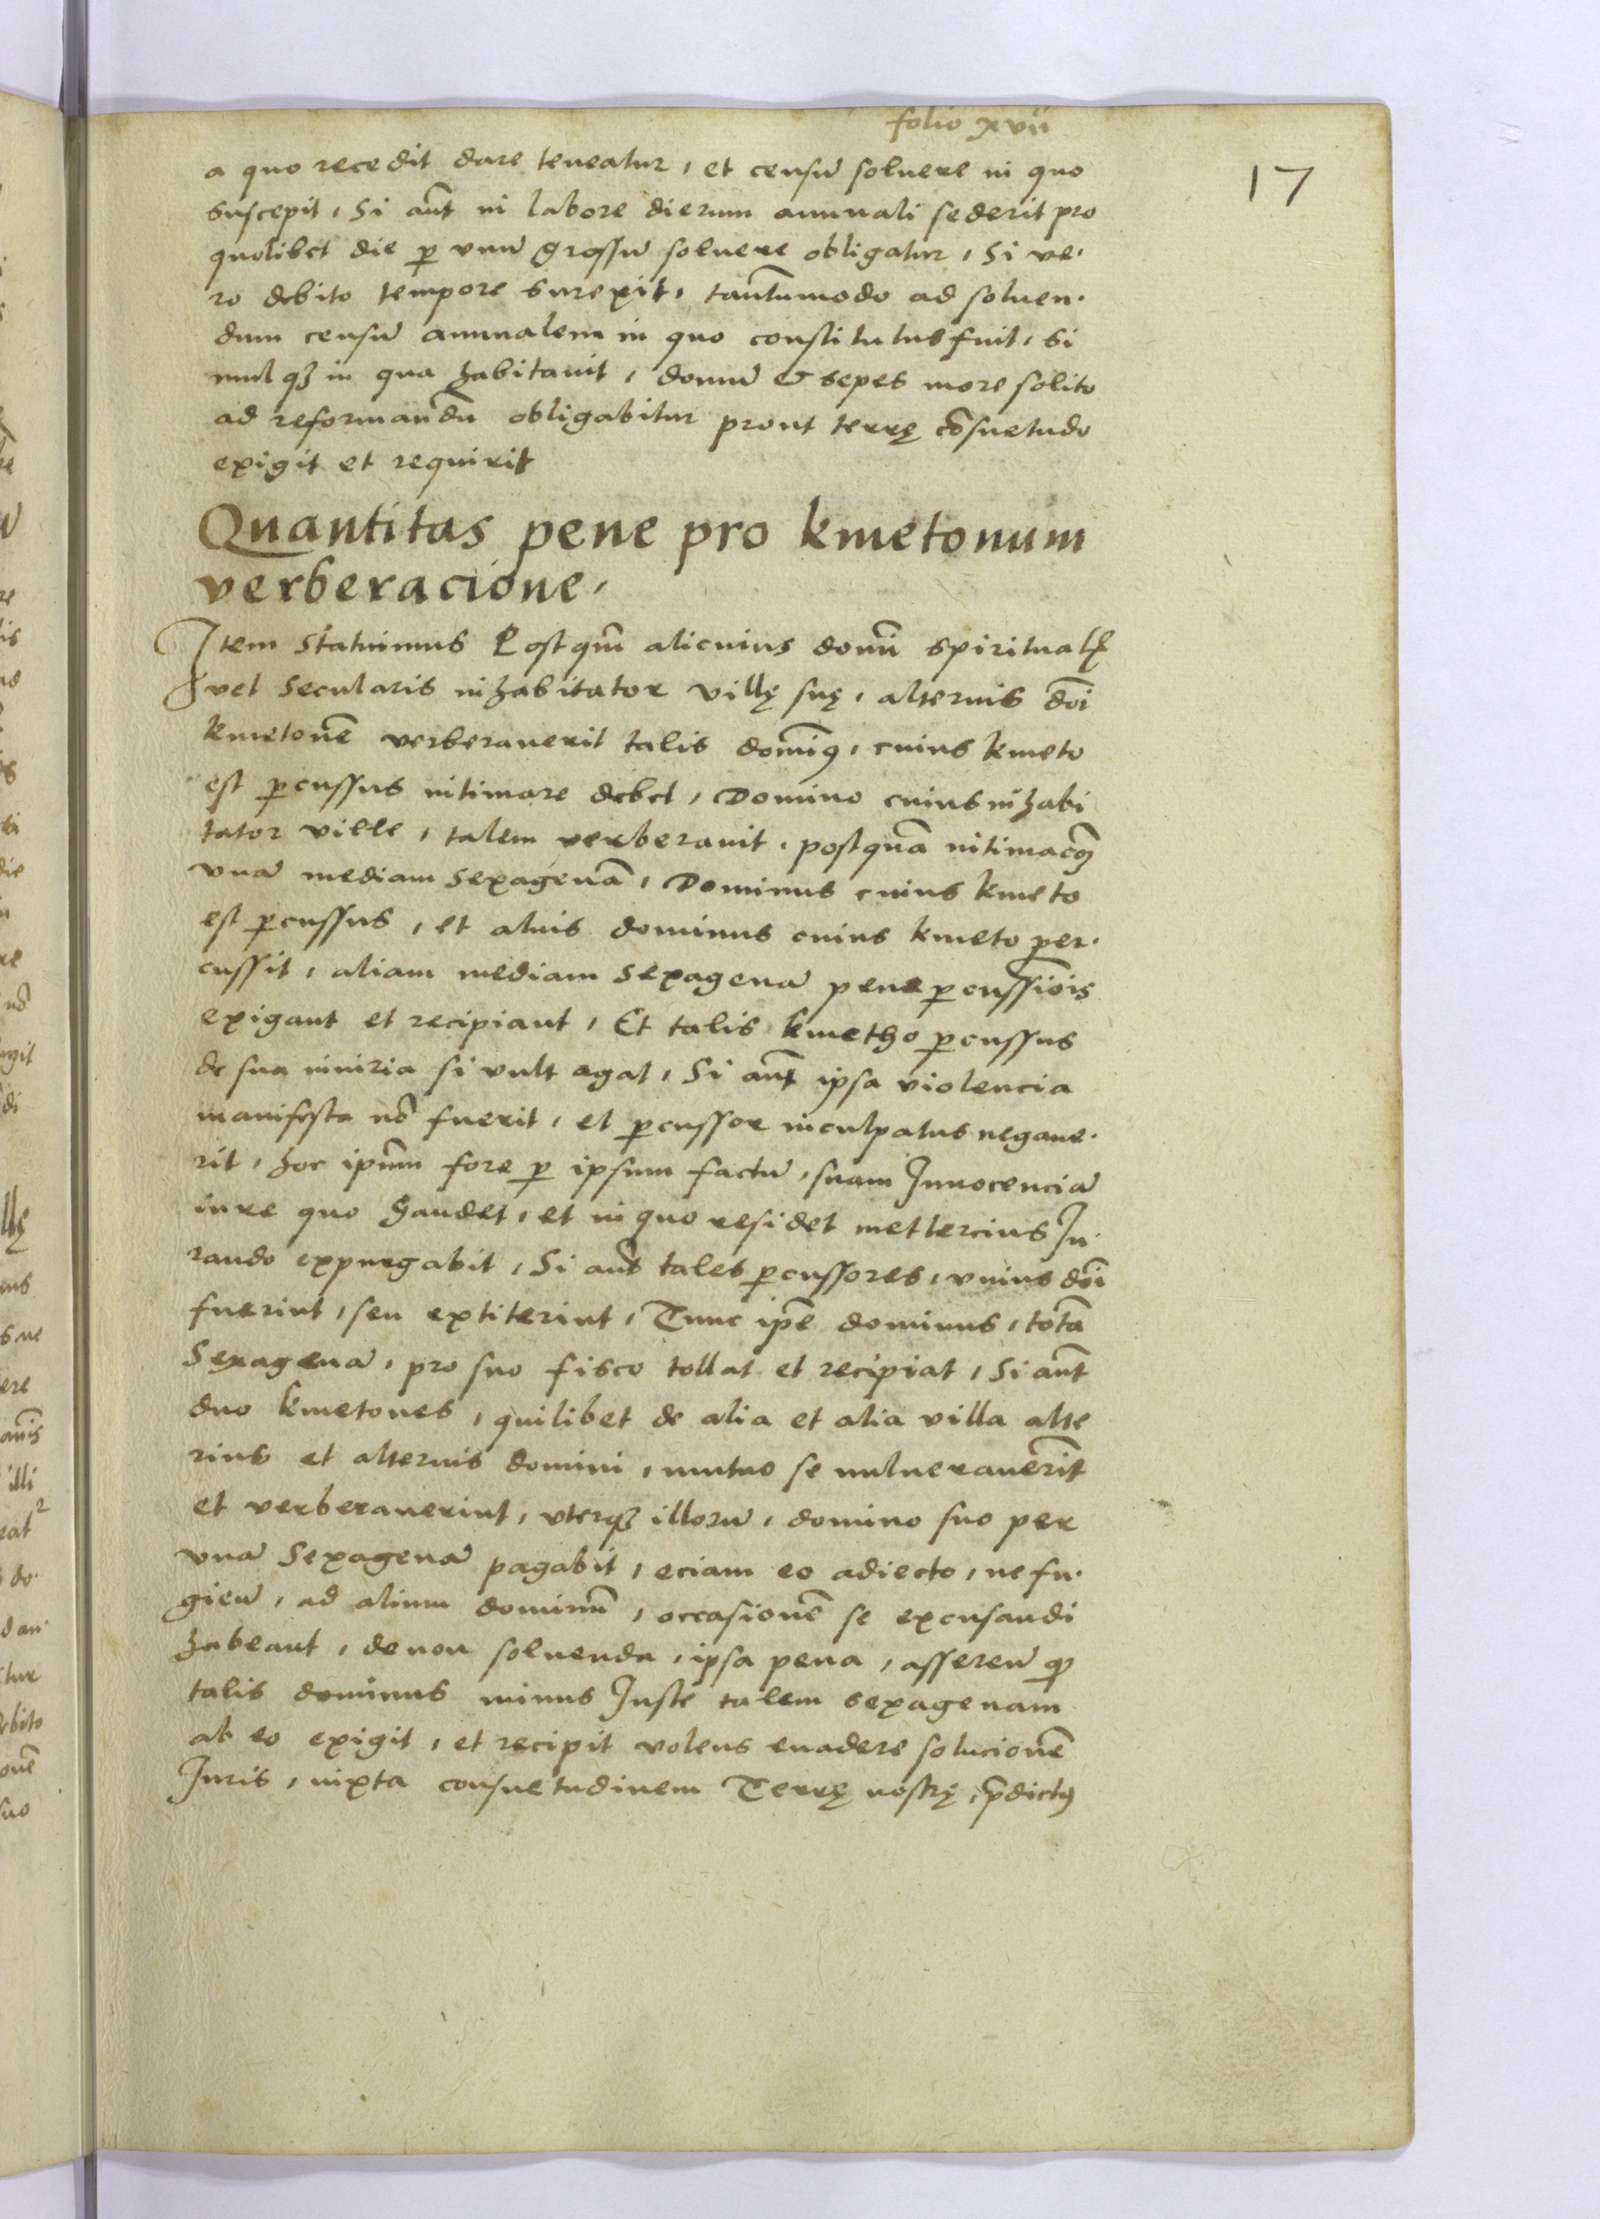 folio xvii
17
a quo recedit dare teneatur, et censū soluere in quo
suscepit, Si aūt in labore dierum annuali sederit pro
quolibet die ꝑ vnū grossū soluere obligatur, Si ve·
ro debito tempore surexit, tātummodo ad soluen·
dum censū annualem in quo constitutus fuit, si
mul qꝫ in qua habitauit, domū & sepes more solito
ad reformandū obligabitur prout terrę cōsuetudo
exigit et requirit
Quantitas pene pro kmetonum
verberacione,
Item statuimus Postqm̄ alicuius domī spiritualꝭ
vel secularis inhabitator villę suę, alterius dōi
kmetonē verberauerit talis domīꝰ, cuius kmeto
est ꝑcussus intimare debet, Domino cuius inhabi
tator ville, talem verberauit, postquā intimacōꝫ
vnā mediam sexagenā, Dominus cuius kmeto
est ꝑcussus, et alius dominus cuius kmeto per·
cussit, aliam mediam sexagenā pene ꝑcussiōis
exigant et recipiant, Et talis kmetho ꝑcussus
de sua iniuria si vult agat, Si aūt ipsa violencia
manifesta nō fuerit, et ꝑcussor inculpatus negaue·
rit, hoc ipm̄ fore ꝑ ipsum factū, suam Innocenciā
iure quo gaudet, et in quo residet mettercius Iu·
rando expurgabit, Si aūt tales ꝑcussores, vnius dōi
fuerint, seu extiterint, Tunc ipē dominus, totā
Sexagenā, pro suo fisco tollat et recipiat, Si aūt
duo kmetones, quilibet de alia et alia villa alte
rius et alterius domini, mutuo se vulnerauerīt
et verberauerint, vterqꝫ illorū, domino suo per
vnā Sexagenā pagabit, eciam eo adiecto, ne fu·
gien̄, ad alium dominū, occasionē se excusandi
habeant, de non soluenda, ipsa pena, asseren̄ ꝙ
talis dominus minus Iuste talem sexagenam
ab eo exigit, et recipit volens euadere solucionē
Iuris, iuxta consuetudinem Terrę nostrę, p̄dictꝰ